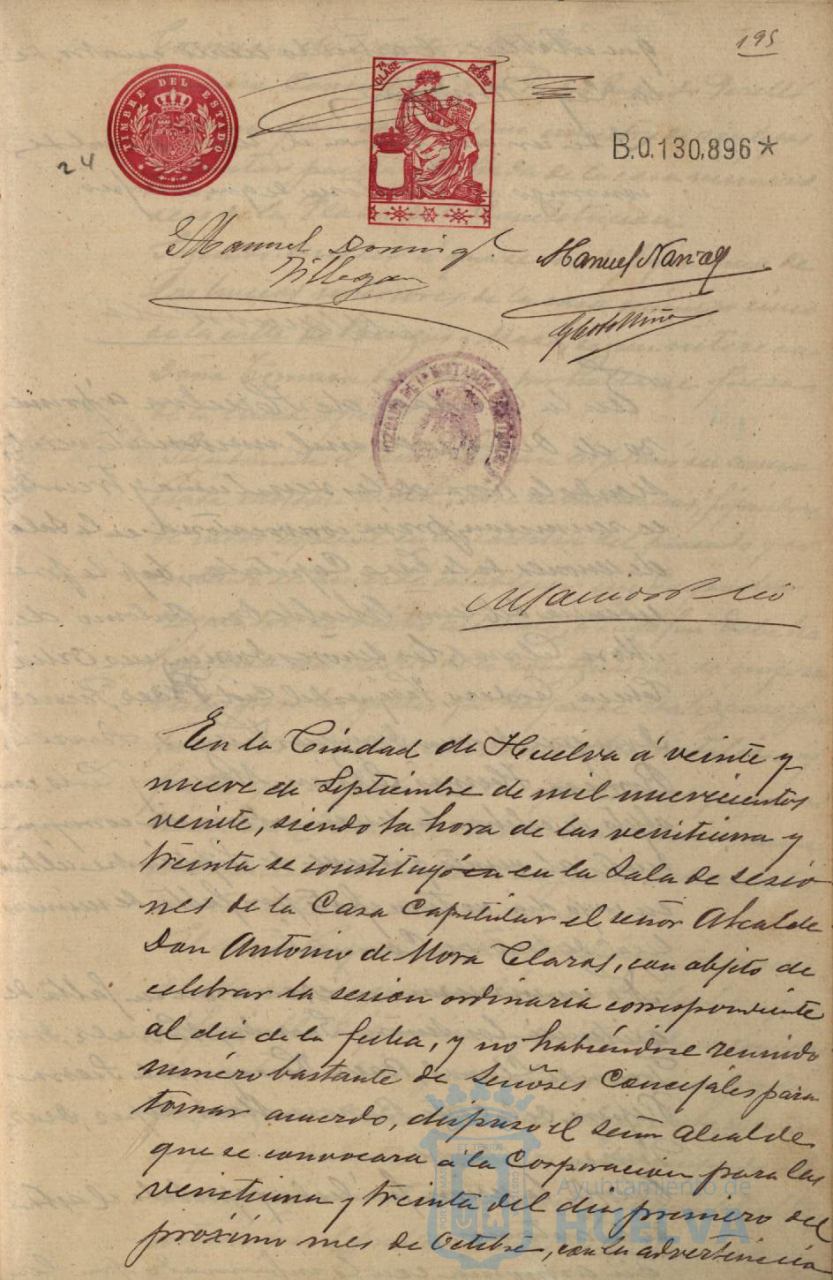 195
TIMBRE DEL ESTADO
7ª CLASE
24
B.0.130,896*
Manuel Doming.
Villegas
Manuel Narvae
JUZGADO DE 1ª INSTANCIA
En la Ciudad de Huelva á veinte y
nueve de Septiembre de mil nuevecientos
veinte, siendo la hora de las veintiuna y
treinta se constituyó en la Sala de sesio
nes de la Casa Capitular el señor Alcalde
Don Antonio de Mora Claros, con objeto de
celebrar la sesion ordinaria correspondiente
al dia de la fecha, y no habiéndose reunido
número bastante de Señores Concejales para
tomar acuerdo, dispuso el señor Alcalde
que se convocara á la Corporacion para las
veintiuna y treinta del dia primero del
próximo mes de Octubre, con la advertencia
Ayuntamiento de
HUELVA